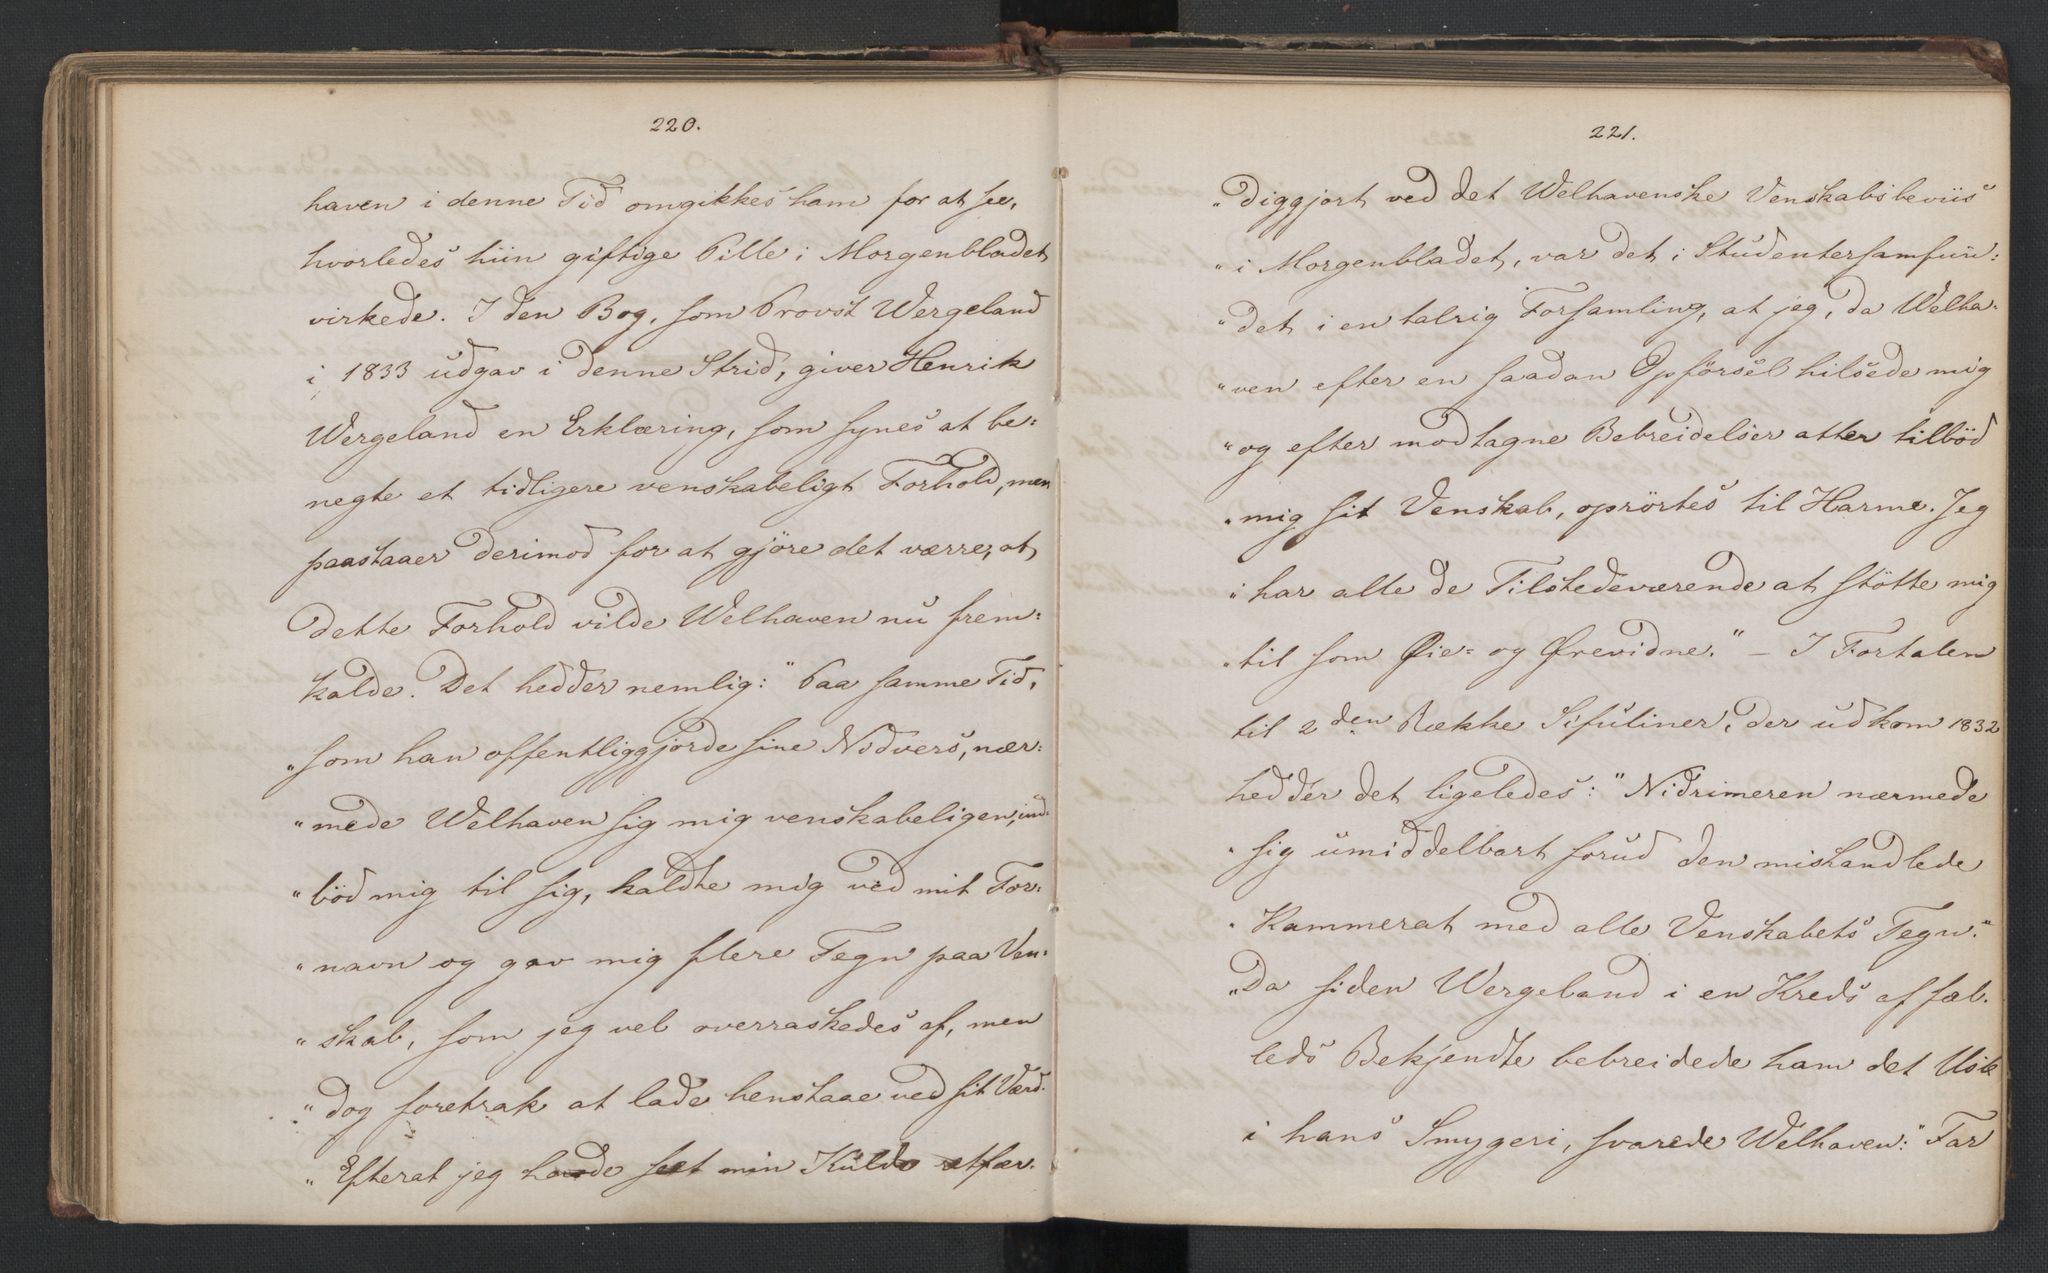 220.
haven i denne Tid omgikkes ham for at see,
hvorledes hiin giftige Pille i Morgenbladet
virkede. I den Bog, som Provst Wergeland
i 1833 udgav i denne Strid, giver Henrik
Wergeland en Erklæring, som synes at be=
negte et tidligere venskabeligt Forhold, men
paastaaer derimod for at gjöre det værre, at
dette Forhold vilde Welhaven nu frem=
kalde. Det hedder nemlig: "Paa samme Tid,
"som han offentliggjorde sine Nidvers, nær=
"mede Welhaven sig mig venskabeligen, ind=
"böd mig til sig, kaldte mig ved mit For=
"navn og gav mig flere Tegn paa Ven=
"skab, som jeg vel overraskedes af, men
"dog foretrak at lade henstaae ved sit Værd.
"Efterat jeg havde seet min Kulde retfær=
221.
"diggjort ved det Welhavenske Venskabsbeviis
"i Morgenbladet, var det i Studentersamfun=
"det i en talrig Forsamling, at jeg, da Welha=
"ven efter en saadan Opförsel hilsede mig
"og efter modtagne Bebreidelser atter tilböd
"mig sit Venskab, oprörtes til Harme. Jeg
"har alle de Tilstedeværende at stötte mig
"til som Øie= og Ørevidne." – I Fortalen
til 2den Række Sifuliner, der udkom 1832
hedder det ligeledes: "Nidrimeren nærmede
"sig umiddelbart forud den mishandlede
"Kammerat med alle Venskabets Tegn."
"Da siden Wergeland i en Kreds af fæl=
leds Bekjendte bebreidede ham det Usle
i hans Smygeri, svarede Welhaven: "Far